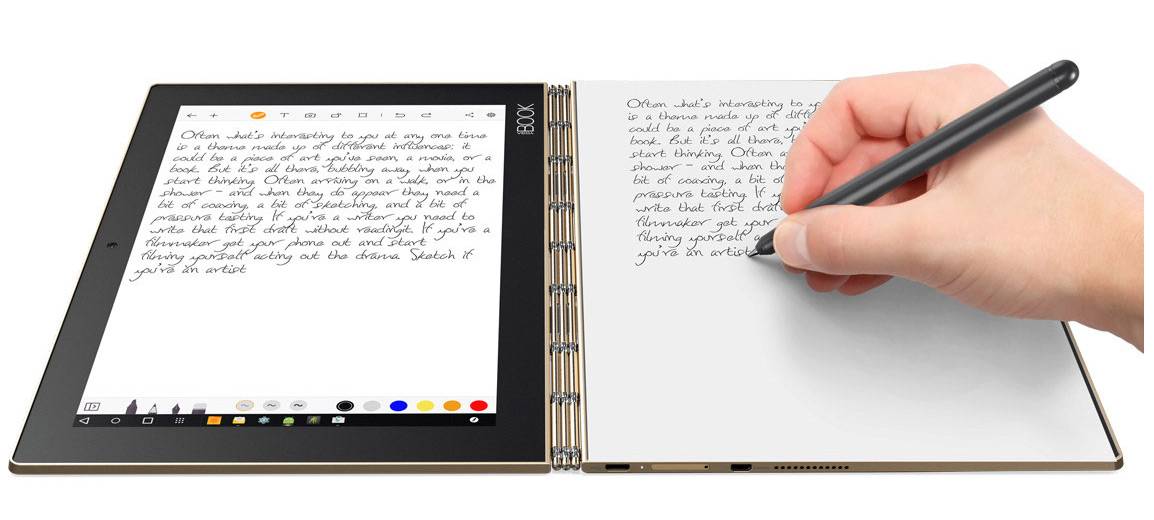 YOGA BOOK
Often what's interesting to you at any one time
is a theme made up of different influences: it
could be a piece of art you've seen, a movie, or a
book. But it's all there, bubbling away when you
start thinking. Often arising on a walk, or in the
shower - and when they do appear they need a
bit of coaxing, a bit of sketching, and a bit of
pressure testing. If you're a writer you need to
write that first draft without readingit. If you're a
filmmaker get your phone out and start
filming yourself acting out the drama. Sketch if
you're an artist
Often what's interesting to
is a theme made up of
could be a piece of art
book. But it's all there,
start thinking. Often
shower - and when
bit of coaxing, a bit of
pressure testing. If
write that first draft
filmmaker get your
filming yourself
you're an artist